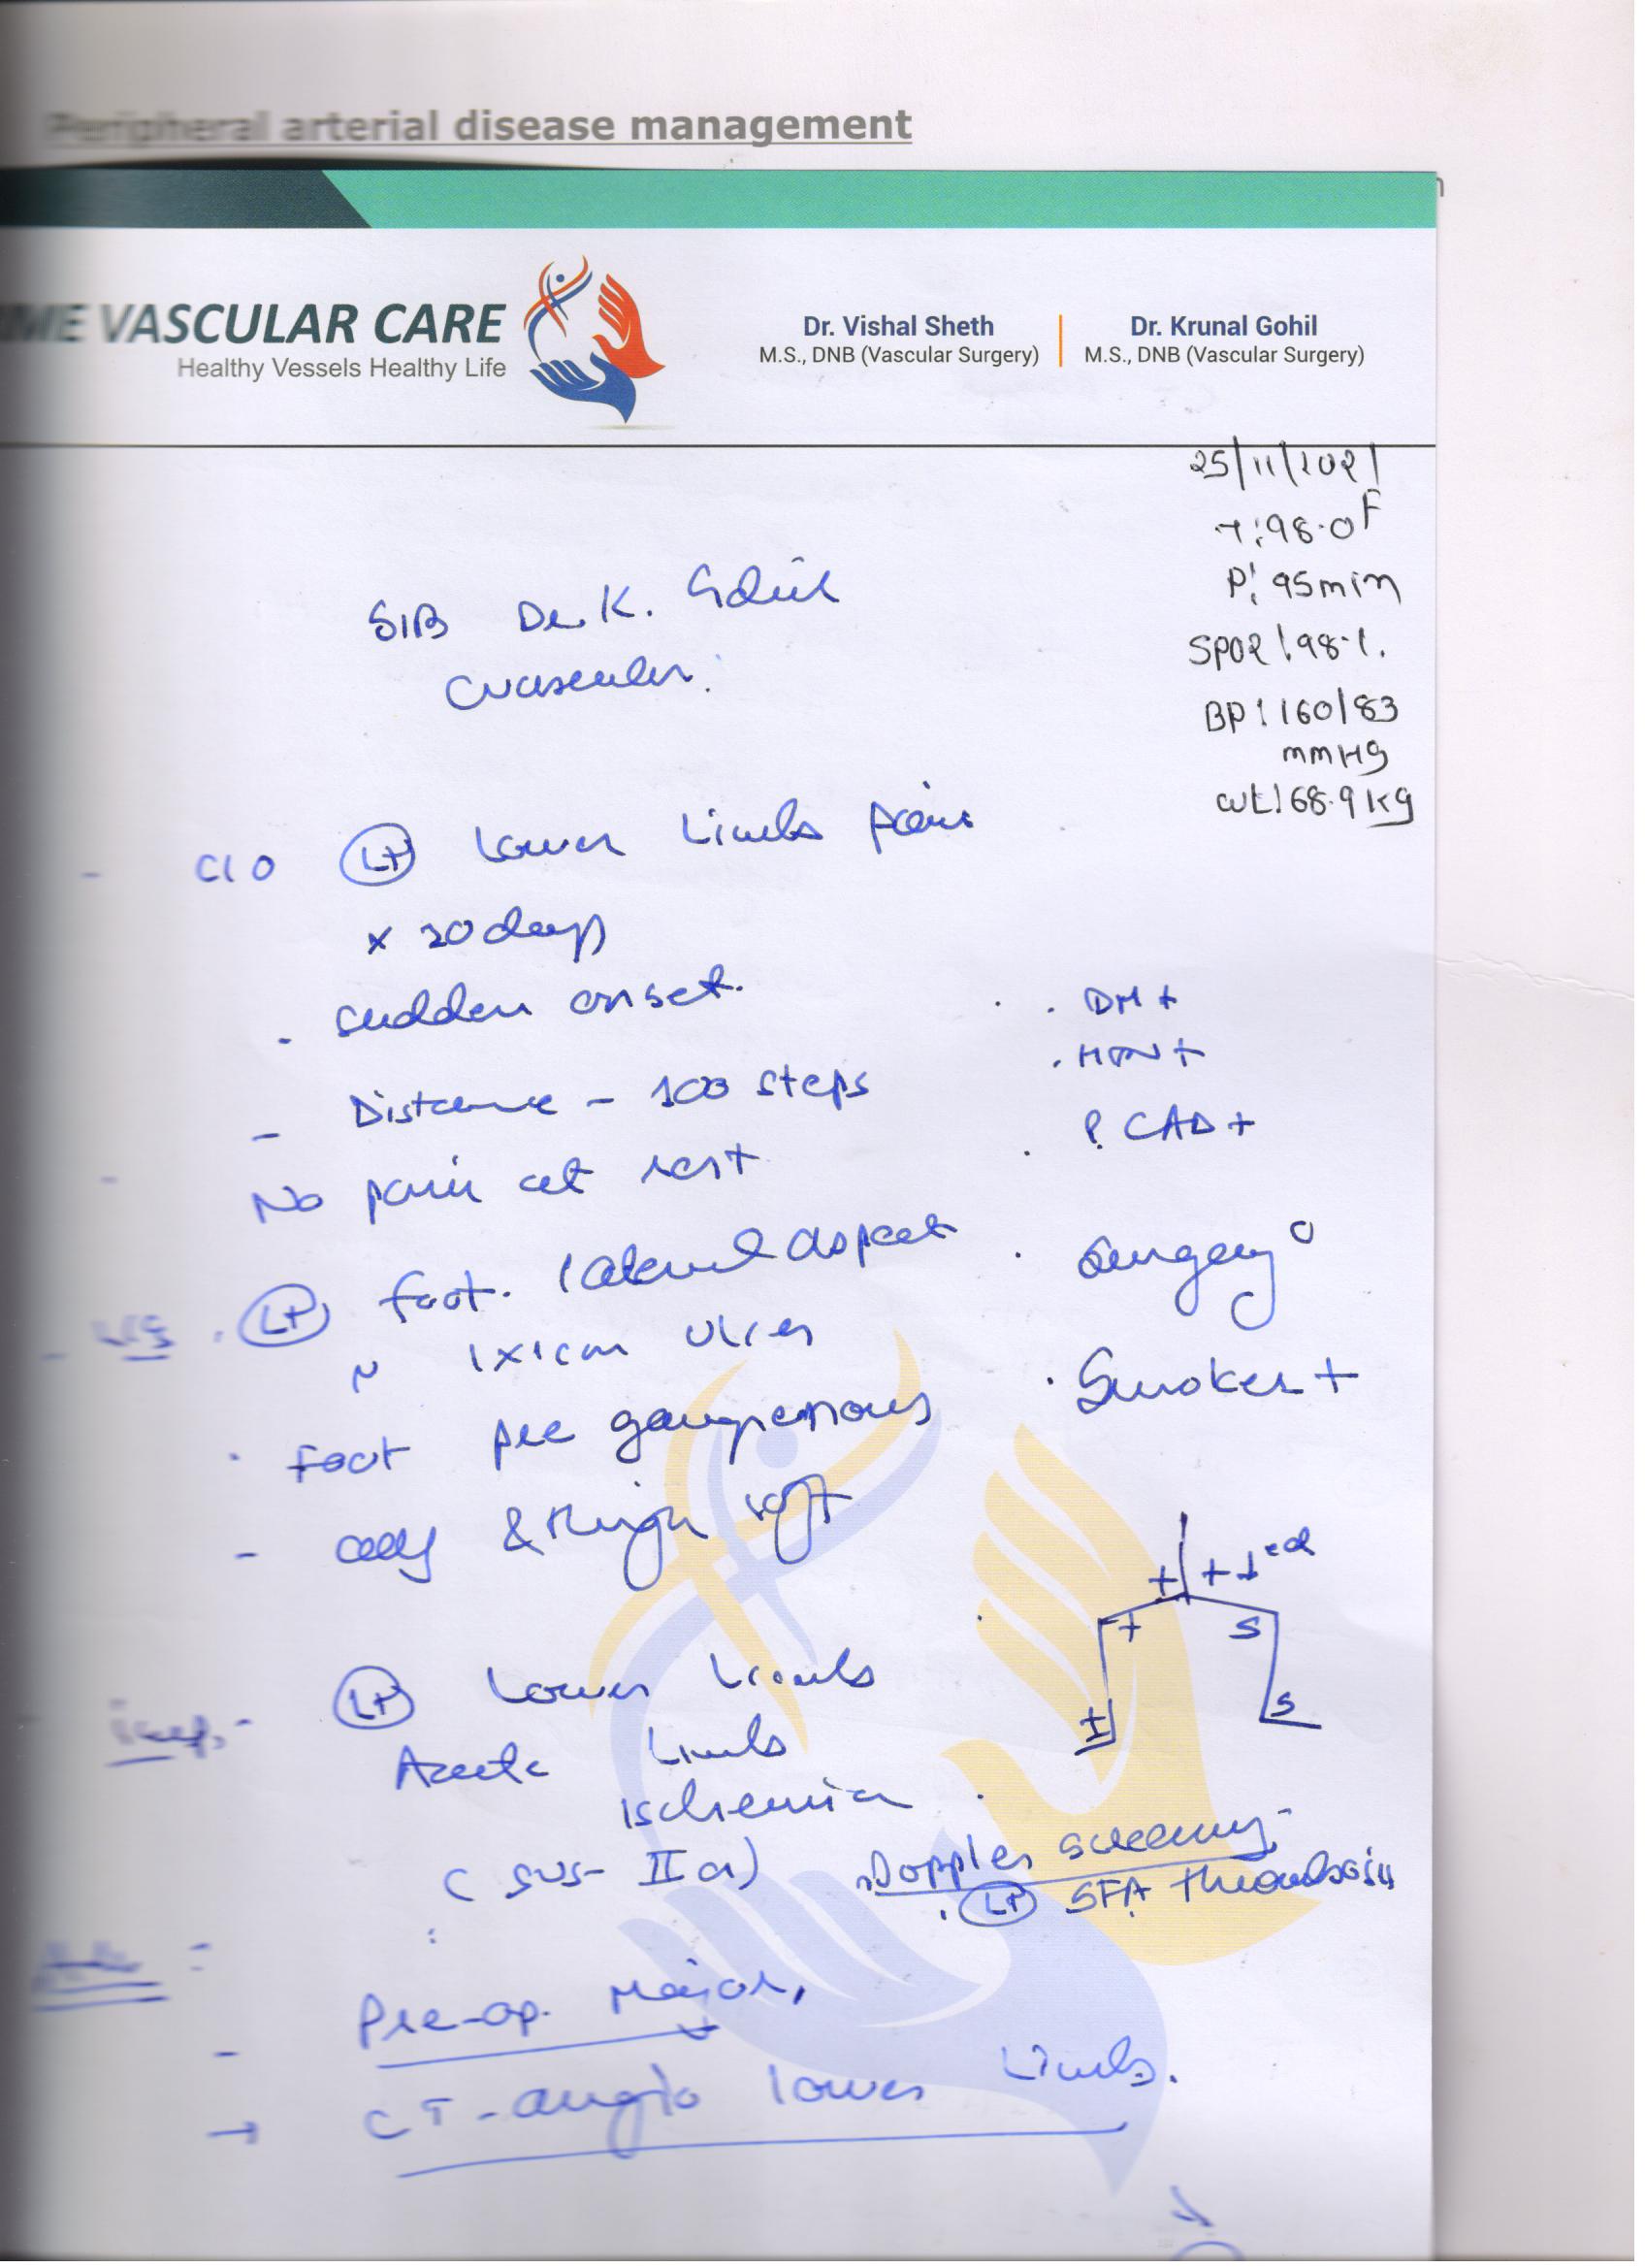 Peripheral arterial disease management
n
IME VASCULAR CARE
Healthy Vessels Healthy Life
Dr. Vishal Sheth
M.S., DNB (Vascular Surgery)
Dr. Krunal Gohil
M.S., DNB (Vascular Surgery)
25/11/2021
T:98.0F
P: 95min
SPO2:98%.
BP:160/83
mmHg
wt:68.9kg
S/B Dr. K. Gohil
- C/O Lt Lower Limb pain
x 20 days
. sudden onset.
- Distance - 100 steps
- No pain at rest
. DM +
. HTN +
. ? CAD +
. Surgery °
. Smoker +
. Lt foot. lateral aspect
1x1cm Ulcer
. Foot pre gangrenous
- calf & thigh soft
+ + ↓ed
+ S
± S
imp.- Lt Lower Limb
Acute Limb
Ischemia
( SVS- IIa)
. Doppler screening-
. Lt SFA thrombosis
- Pre-op. Major,
→ CT-angio lower Limb.